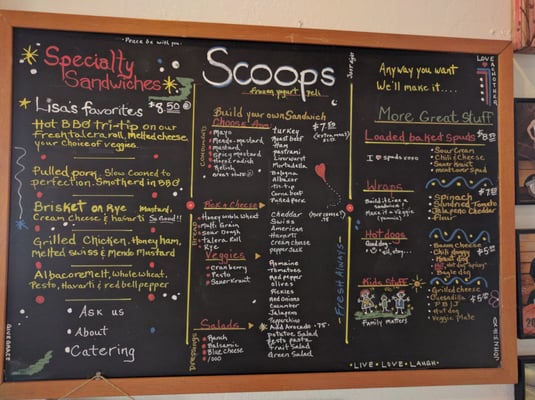 Peace be with you
Specialty
Sandwiches
$8.50
Lisa's favorites
Hot BBQ tri-tip on our
fresh talera roll, Melted cheese,
your choice of veggies.
Pulled pork, Slow cooked to
perfection. Smotherd in BBQ
Brisket on Rye Mustard,
Cream Cheese & havarti So Good!!
Grilled Chicken, Honey ham,
melted swiss & Mendo Mustard
Albacore Melt, Whole wheat,
Pesto, Havarti & red bell pepper
Ask us
About
Catering
Scoops
frozen yogurt & deli
Build your own Sandwich
$7.50
Condiments
Mayo
Mendo-mustard
mustard
Spicy mustard
Horse radish
Relish
Great stuff
turkey
Roast beef
Ham
pastrami
Liverwurst
Mortadella
Bologna
Albacor
Tri-tip
Corn beef
Pulled Pork
Pick a Cheese
Bread
Honey Whole Wheat
Multi Grain
Sour Dough
Talera Roll
Rye
Cheddar
Swiss
American
Havarti
Cream cheese
pepper Jack
Veggies
Cranberry
Pesto
Sauer Kraut
Romaine
Tomatoes
Red pepper
olives
Pickles
Red onions
Cucumber
Jalapenos
Add Avocado .75
Salads
Dressings
Ranch
Balsamic
Blue Cheese
1000
potatoe Salad
Pesto pasta
Fruit Salad
Green Salad
~Fresh Always~
Anyway you want
We'll make it....
LOVE
EACH OTHER
More Great Stuff
Loaded baked spuds
I spuds
Sour Cream
Chili & Cheese
Sauer Kraut
Wraps
Build it like a
sandwich!
Make it a Veggie
Spinach
Sundried Tomato
Jalapeno Cheddar
Flour
Hot dogs
Bacon Cheese
Chili doggy
Kraut dog
Bagle dog
Kids Stuff
Family matters
Grilled cheese
Quesadilla
PB|J
Hot dog
Veggie Plate
·LIVE·LOVE·LAUGH·